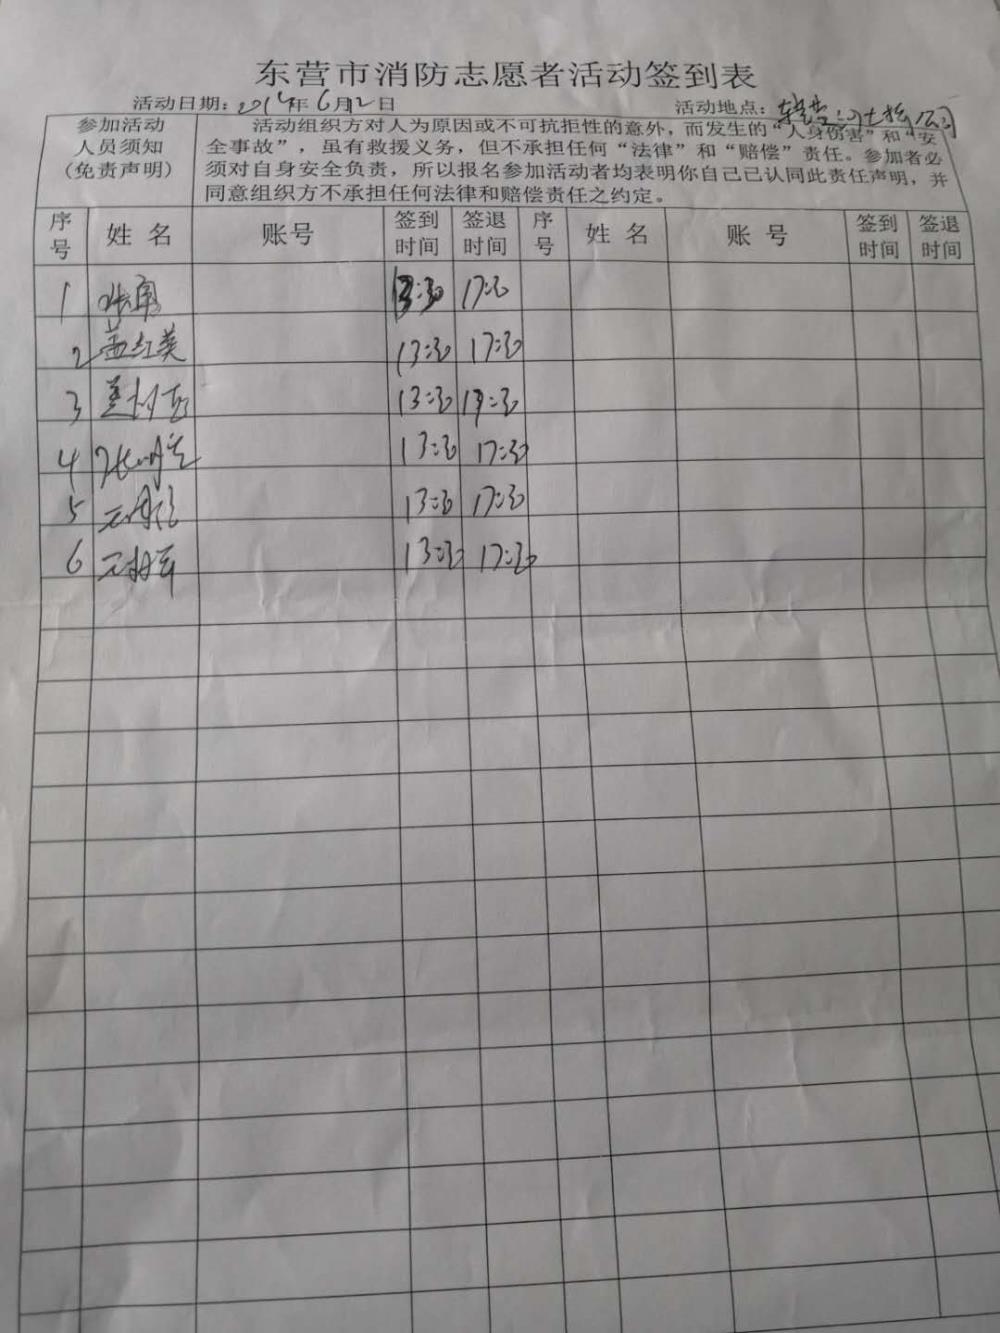 东营市消防志愿者活动签到表
活动日期：201 年6月2日 活动地点： 公司
参加活动人员须知(免责声明)
活动组织方对人为原因或不可抗拒性的意外，而发生的“人身伤害”和“安
全事故”，虽有救援义务，但不承担任何“法律”和“赔偿”责任。参加者必
须对自身安全负责，所以报名参加活动者均表明你自己已认同此责任声明，并
同意组织方不承担任何法律和赔偿责任之约定。
序号 姓名 账号 签到时间 签退时间 序号 姓名 账号 签到时间 签退时间
1 13:30 17:30
2 盖红英 13:30 17:30
3 13:30 17:30
4 13:30 17:30
5 13:30 17:30
6 13:30 17:30